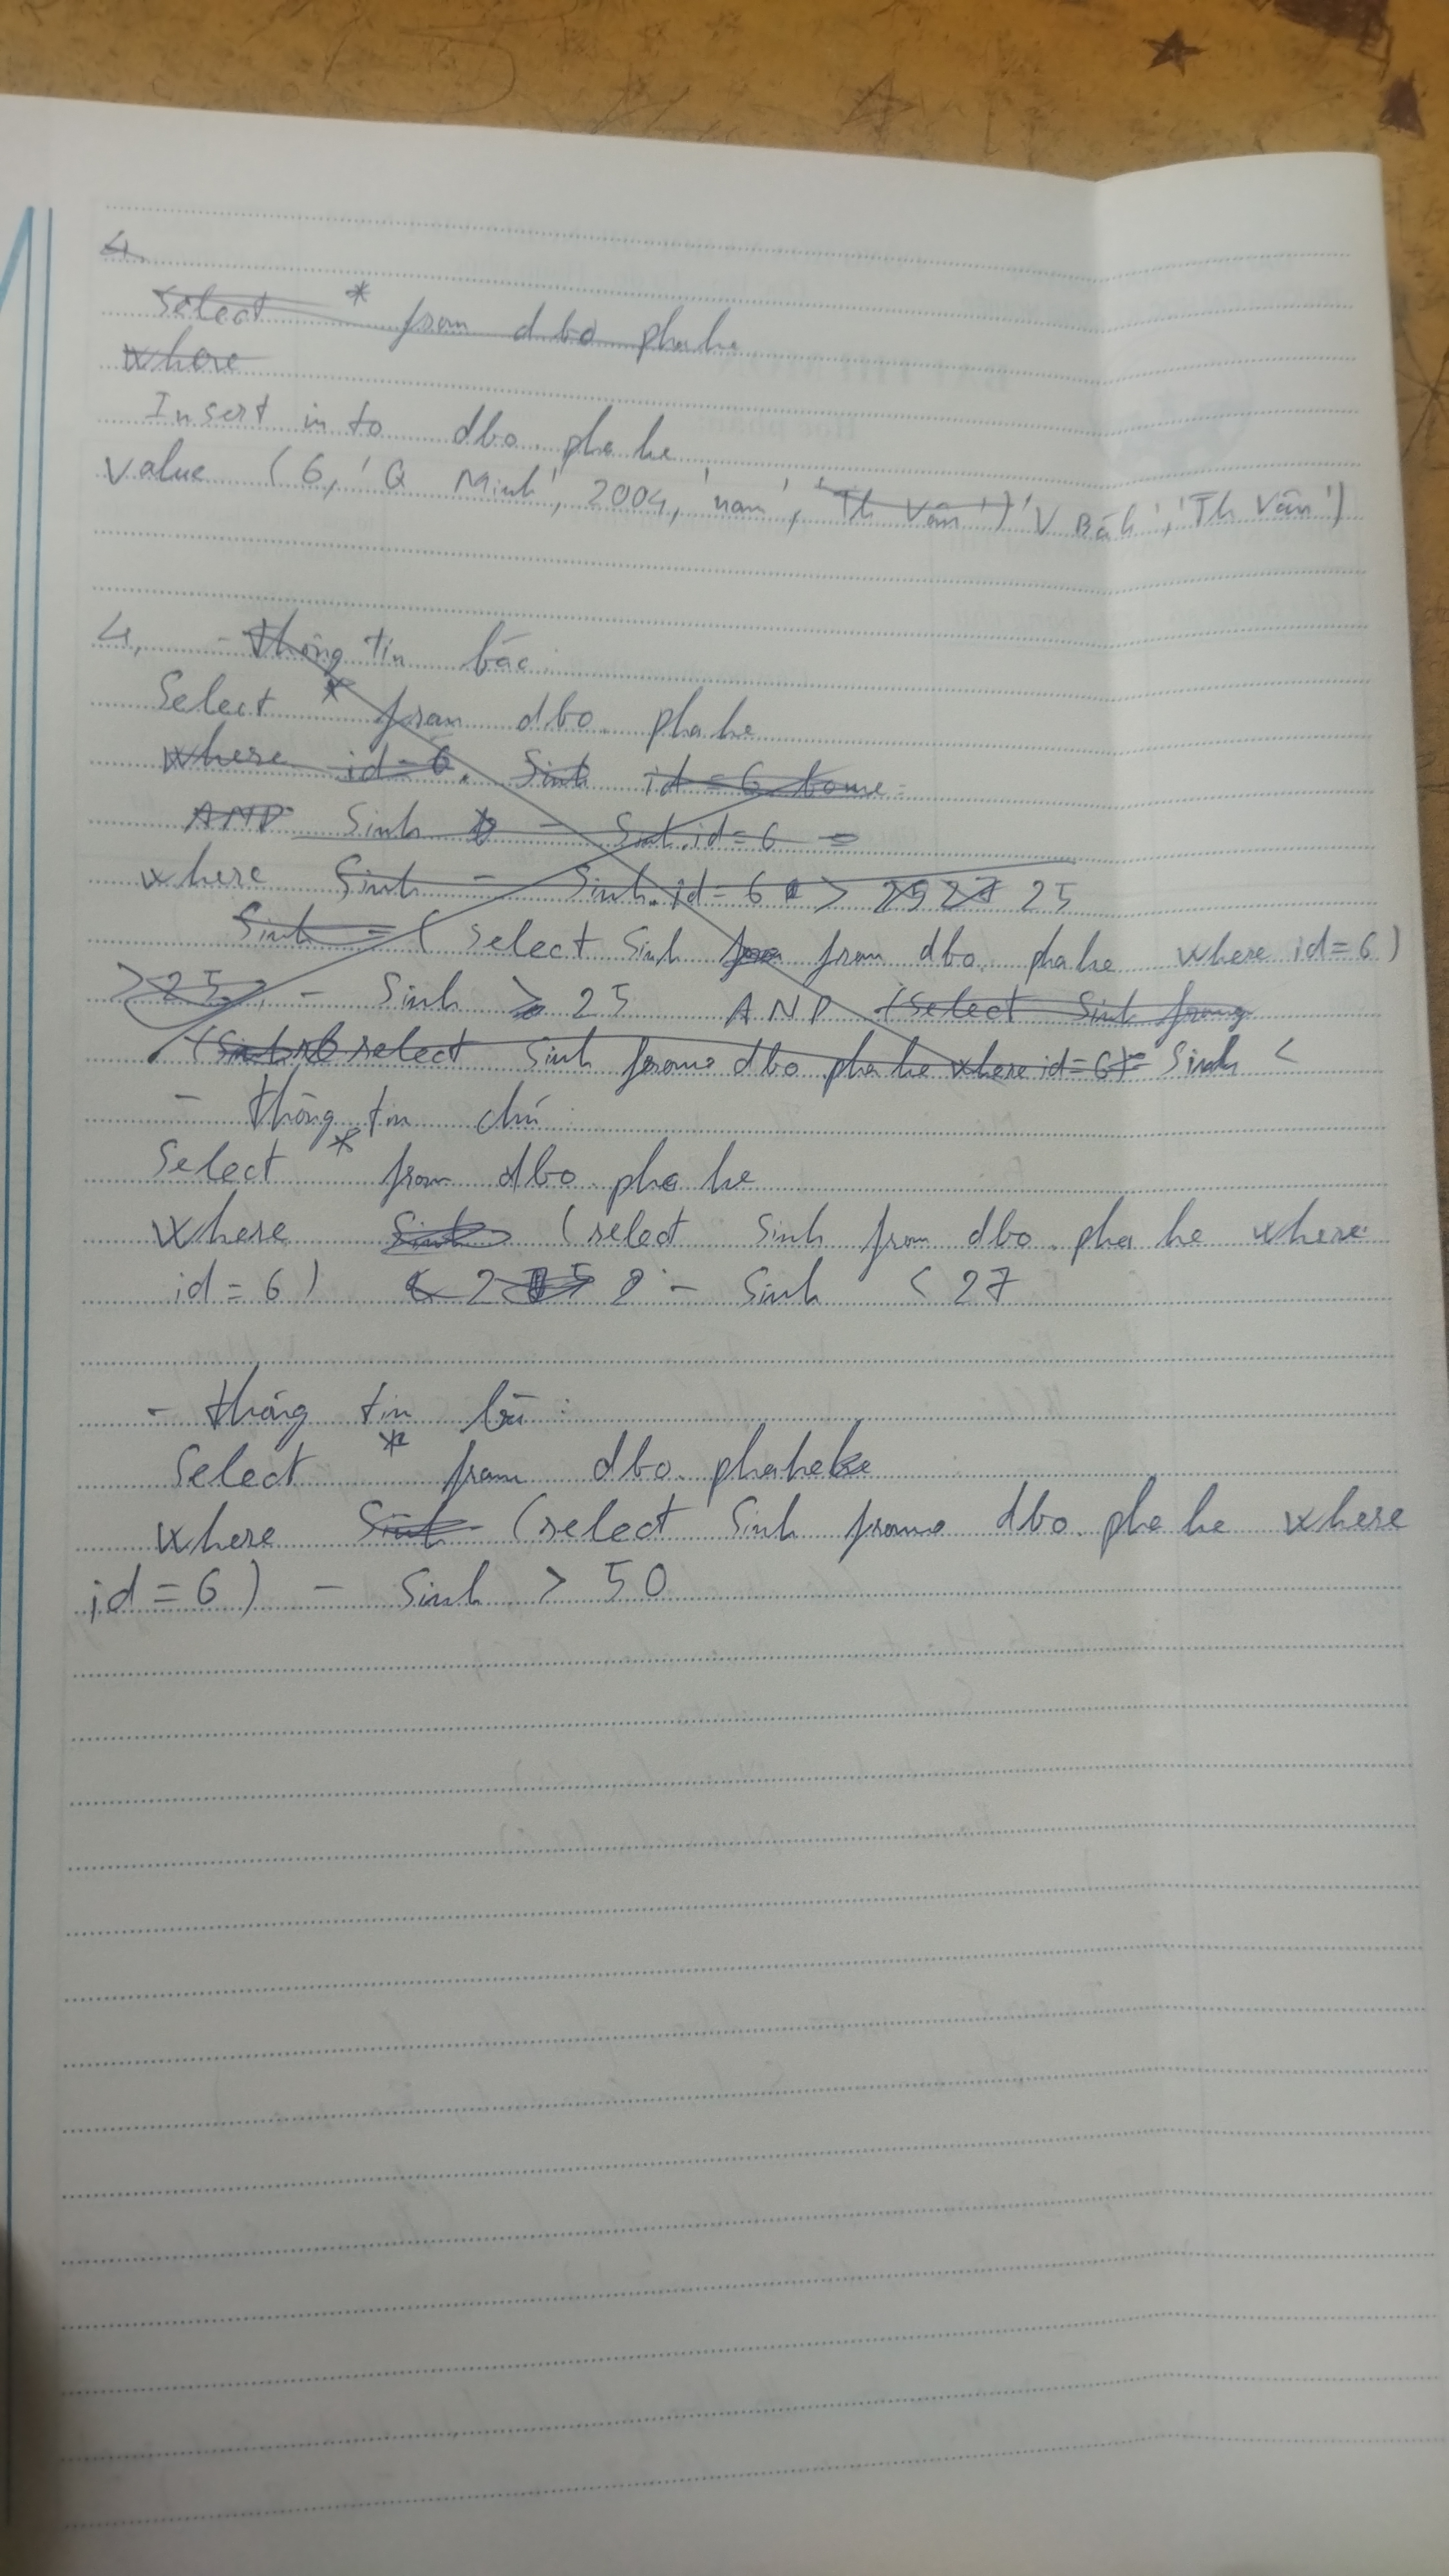 4.
Select * from dbo phahe
where
Insert in to dbo. phahe
Value (6, 'Q Minh', 2004, 'nam', 'Th Vân') 'V Bách', 'Th Vân')
4, - Thông tin bác:
Select * from dbo. phahe
where id=6. Sinh id=6
AND Sinh - Sinh.id=6 =
where Sinh - Sinh.id=6 > 25
Sinh = (select Sinh from dbo. phahe where id=6)
>25 - Sinh > 25 AND (select Sinh from
select Sinh from dbo phahe where id=6) - Sinh <
- Thông tin chú:
Select * from dbo. phahe
where Sinh (select Sinh from dbo. phahe where
id=6) < 2 - Sinh < 27
- thông tin bà:
Select * from dbo. phahe
where Sinh (select Sinh from dbo. phahe where
id=6) - Sinh > 50